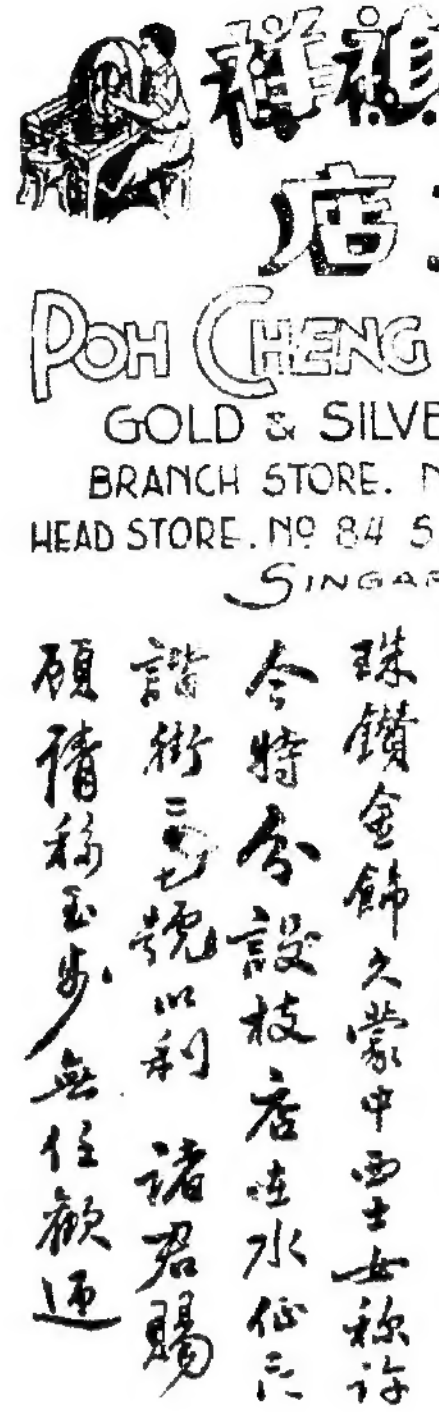 禎祥
店
POH CHENG
GOLD & SILVE
BRANCH STORE. N
HEAD STORE. Nº 84 S
SINGAP
珠鑽金飾久蒙中西士女稱許
今特分設枝店在水仙門
諧街號以利 諸君賜
顧請移玉步無任歡迎